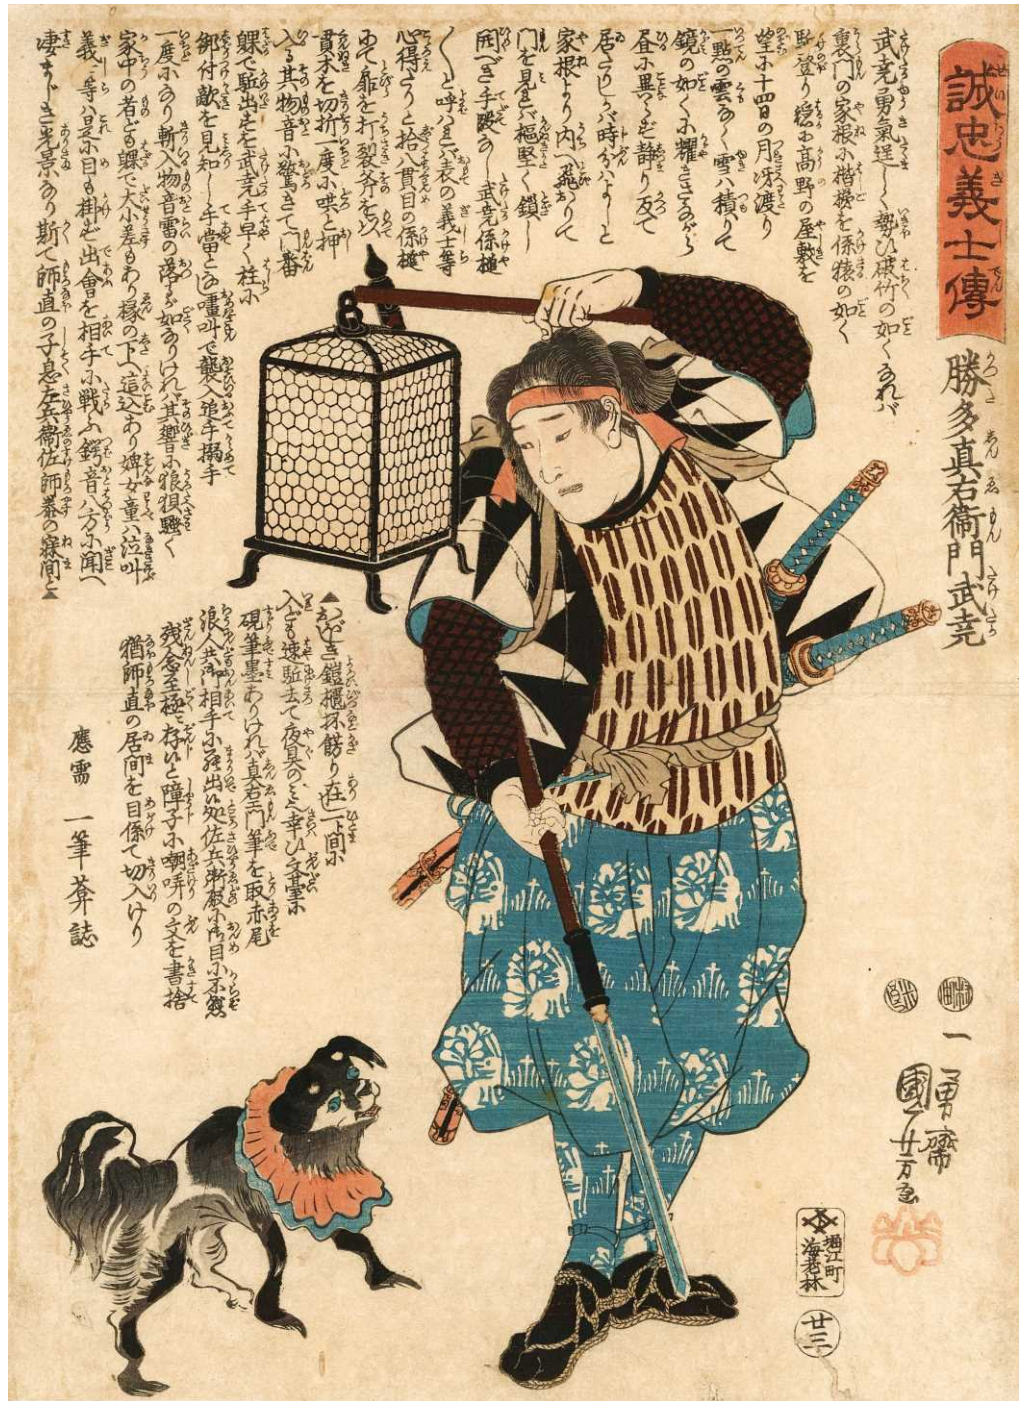 誠忠義士傳
勝多真右衛門武尭
武尭勇氣逞しく勢ひ破竹の如くなれバ
裏門の家根に楷梯を係猿の如く
駈登り
高野の屋敷を
望に十四日の月冴渡り
一點の雲なく雪ハ積りて
鏡の如くに耀きさながら
昼に異らず静り反て
居たりしが時分ハよしと
家根より内へ飛おりて
門を見れバ樞堅く鎖し
開べき手段なし武尭係槌
〱と呼ハれバ表の義士等
心得たりと拾八貫目の係槌
にて扉を打裂斧を以
貫木を切折一度に哄と押
入る其物音に驚きて門番
躶で駈出すを武尭手早く柱に
御付敵を見知し手當となし
叫で襲入追手搦手
一度になり斬入物音雷の落るが如なりけれバ其響に狼狽騒ぐ
家中の者ども躶で大小差もあり椽の下へ這込あり婢女童ハ泣叫
義士等ハ是に目も掛ず出會を相手に戦ふ鍔音八方に聞へ
凄まじき光景なり斯て師直の子息左兵衛佐師
の寐間と▲
▲おぼしき鎧櫃抔餝り在一ト間に
入ども速駈去て夜具のミ幸ひ文臺に
硯筆墨ありけれバ真右エ門筆を取赤尾
浪人共御相手に罷出候処佐兵衛殿に御目に不懸
残念至極ニ存候と障子に嘲哢の文を書捨
猶師直の居間を目係て切入けり
應需
一筆葊誌
村田
米良
一勇齋
國芳画
堀江町
海老林
廿三